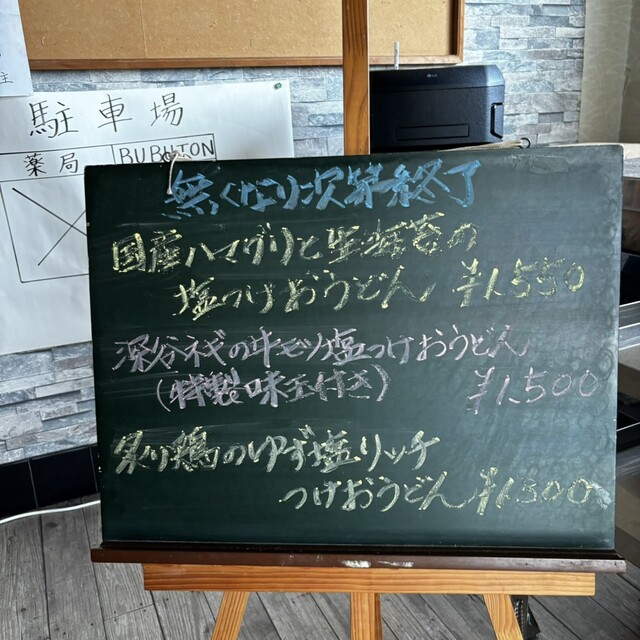 駐車場
薬局
BUBUTON
無くなり次第終了
国産ハマグリと生海苔の
塩つけおうどん ¥1,550
深谷ネギの牛モツ塩つけおうどん
(特製味玉付き) ¥1,500
炙り鶏のゆず塩リッチ
つけおうどん ¥1,300